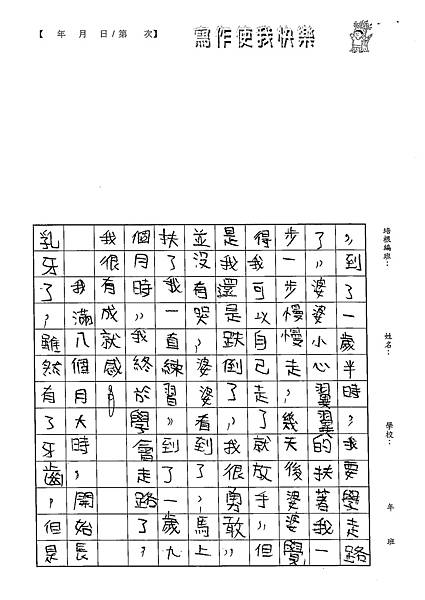 【　年　月　日/第　次】
寫作使我快樂
培根編班：　姓名：　學校：　年　班
，到了一歲半時，我要學走路
了，婆婆小心翼翼的扶著我一
步一步慢慢走，幾天後婆婆覺
得我可以自己走了就放手，但
是我還是跌倒了，我很勇敢，
並沒有哭，婆婆看到了，馬上
扶了我一直練習，到了一歲九
個月時，我終於學會走路了，
我很有成就感！
我滿八個月大時，開始長
乳牙了，雖然有了牙齒，但是